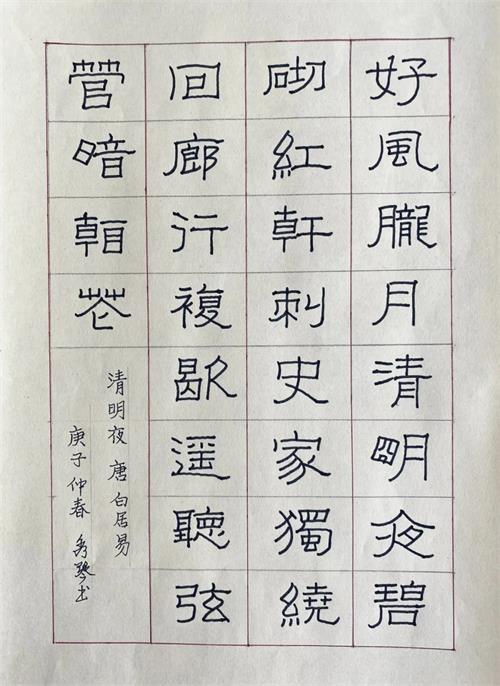 好風朧月清明夜碧
砌紅軒刺史家獨繞
回廊行複歇遥聽弦
管暗看花
清明夜 唐 白居易
庚子 仲春 秀琴书